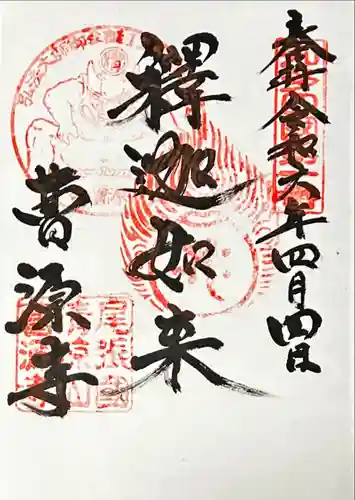 奉拝 令和六年四月四日
釋迦如来
曹源寺